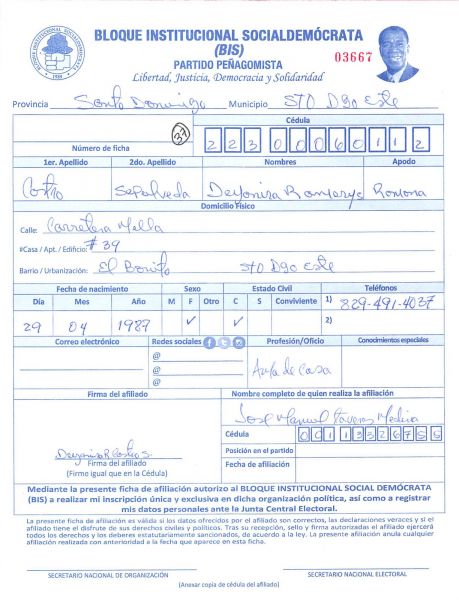 BLOQUE INSTITUCIONAL SOCIALDEMÓCRATA
(BIS)
PARTIDO PEÑAGOMISTA
Libertad, Justicia, Democracia y Solidaridad
03667
BLOQUE INSTITUCIONAL SOCIALDEMÓCRATA
Provincia Santo Domingo Municipio STO Dgo Este
Cédula
Número de ficha 37 2 2 3 0 0 0 6 0 1 1 2
1er. Apellido 2do. Apellido Nombres Apodo
Castro Sepulveda Ramona
Domicilio Físico
Calle: Carretera Mella
#Casa / Apt. / Edificio: # 39
Barrio / Urbanización: El Bonito STO Dgo Este
Fecha de nacimiento Sexo Estado Civil Teléfonos
Día Mes Año M F Otro C S Conviviente 1) 829-491-4037
29 04 1987 ✓ ✓ 2)
Correo electrónico Redes sociales Profesión/Oficio Conocimientos especiales
@
@ Ama de Casa
@
Firma del afiliado Nombre completo de quien realiza la afiliación
Jose Manuel Taveras Medina
Cédula 0 0 1 1 3 3 2 6 7 5 5
Posición en el partido
Firma del afiliado Fecha de afiliación
(Firma igual que en la Cédula)
Mediante la presente ficha de afiliación autorizo al BLOQUE INSTITUCIONAL SOCIAL DEMÓCRATA
(BIS) a realizar mi inscripción única y exclusiva en dicha organización política, así como a registrar
mis datos personales ante la Junta Central Electoral.
La presente ficha de afiliación es válida si los datos ofrecidos por el afiliado son correctos, las declaraciones veraces y si el
afiliado tiene el disfrute de sus derechos civiles y políticos. Tras su recepción, sello y firma autorizados el afiliado ejercerá
todos los derechos y los deberes estatutariamente sancionados, de acuerdo a la ley. La presente afiliación anula cualquier
afiliación realizada con anterioridad a la fecha que aparece en esta ficha.
SECRETARIO NACIONAL DE ORGANIZACIÓN SECRETARIO NACIONAL ELECTORAL
(Anexar copia de cédula del afiliado)